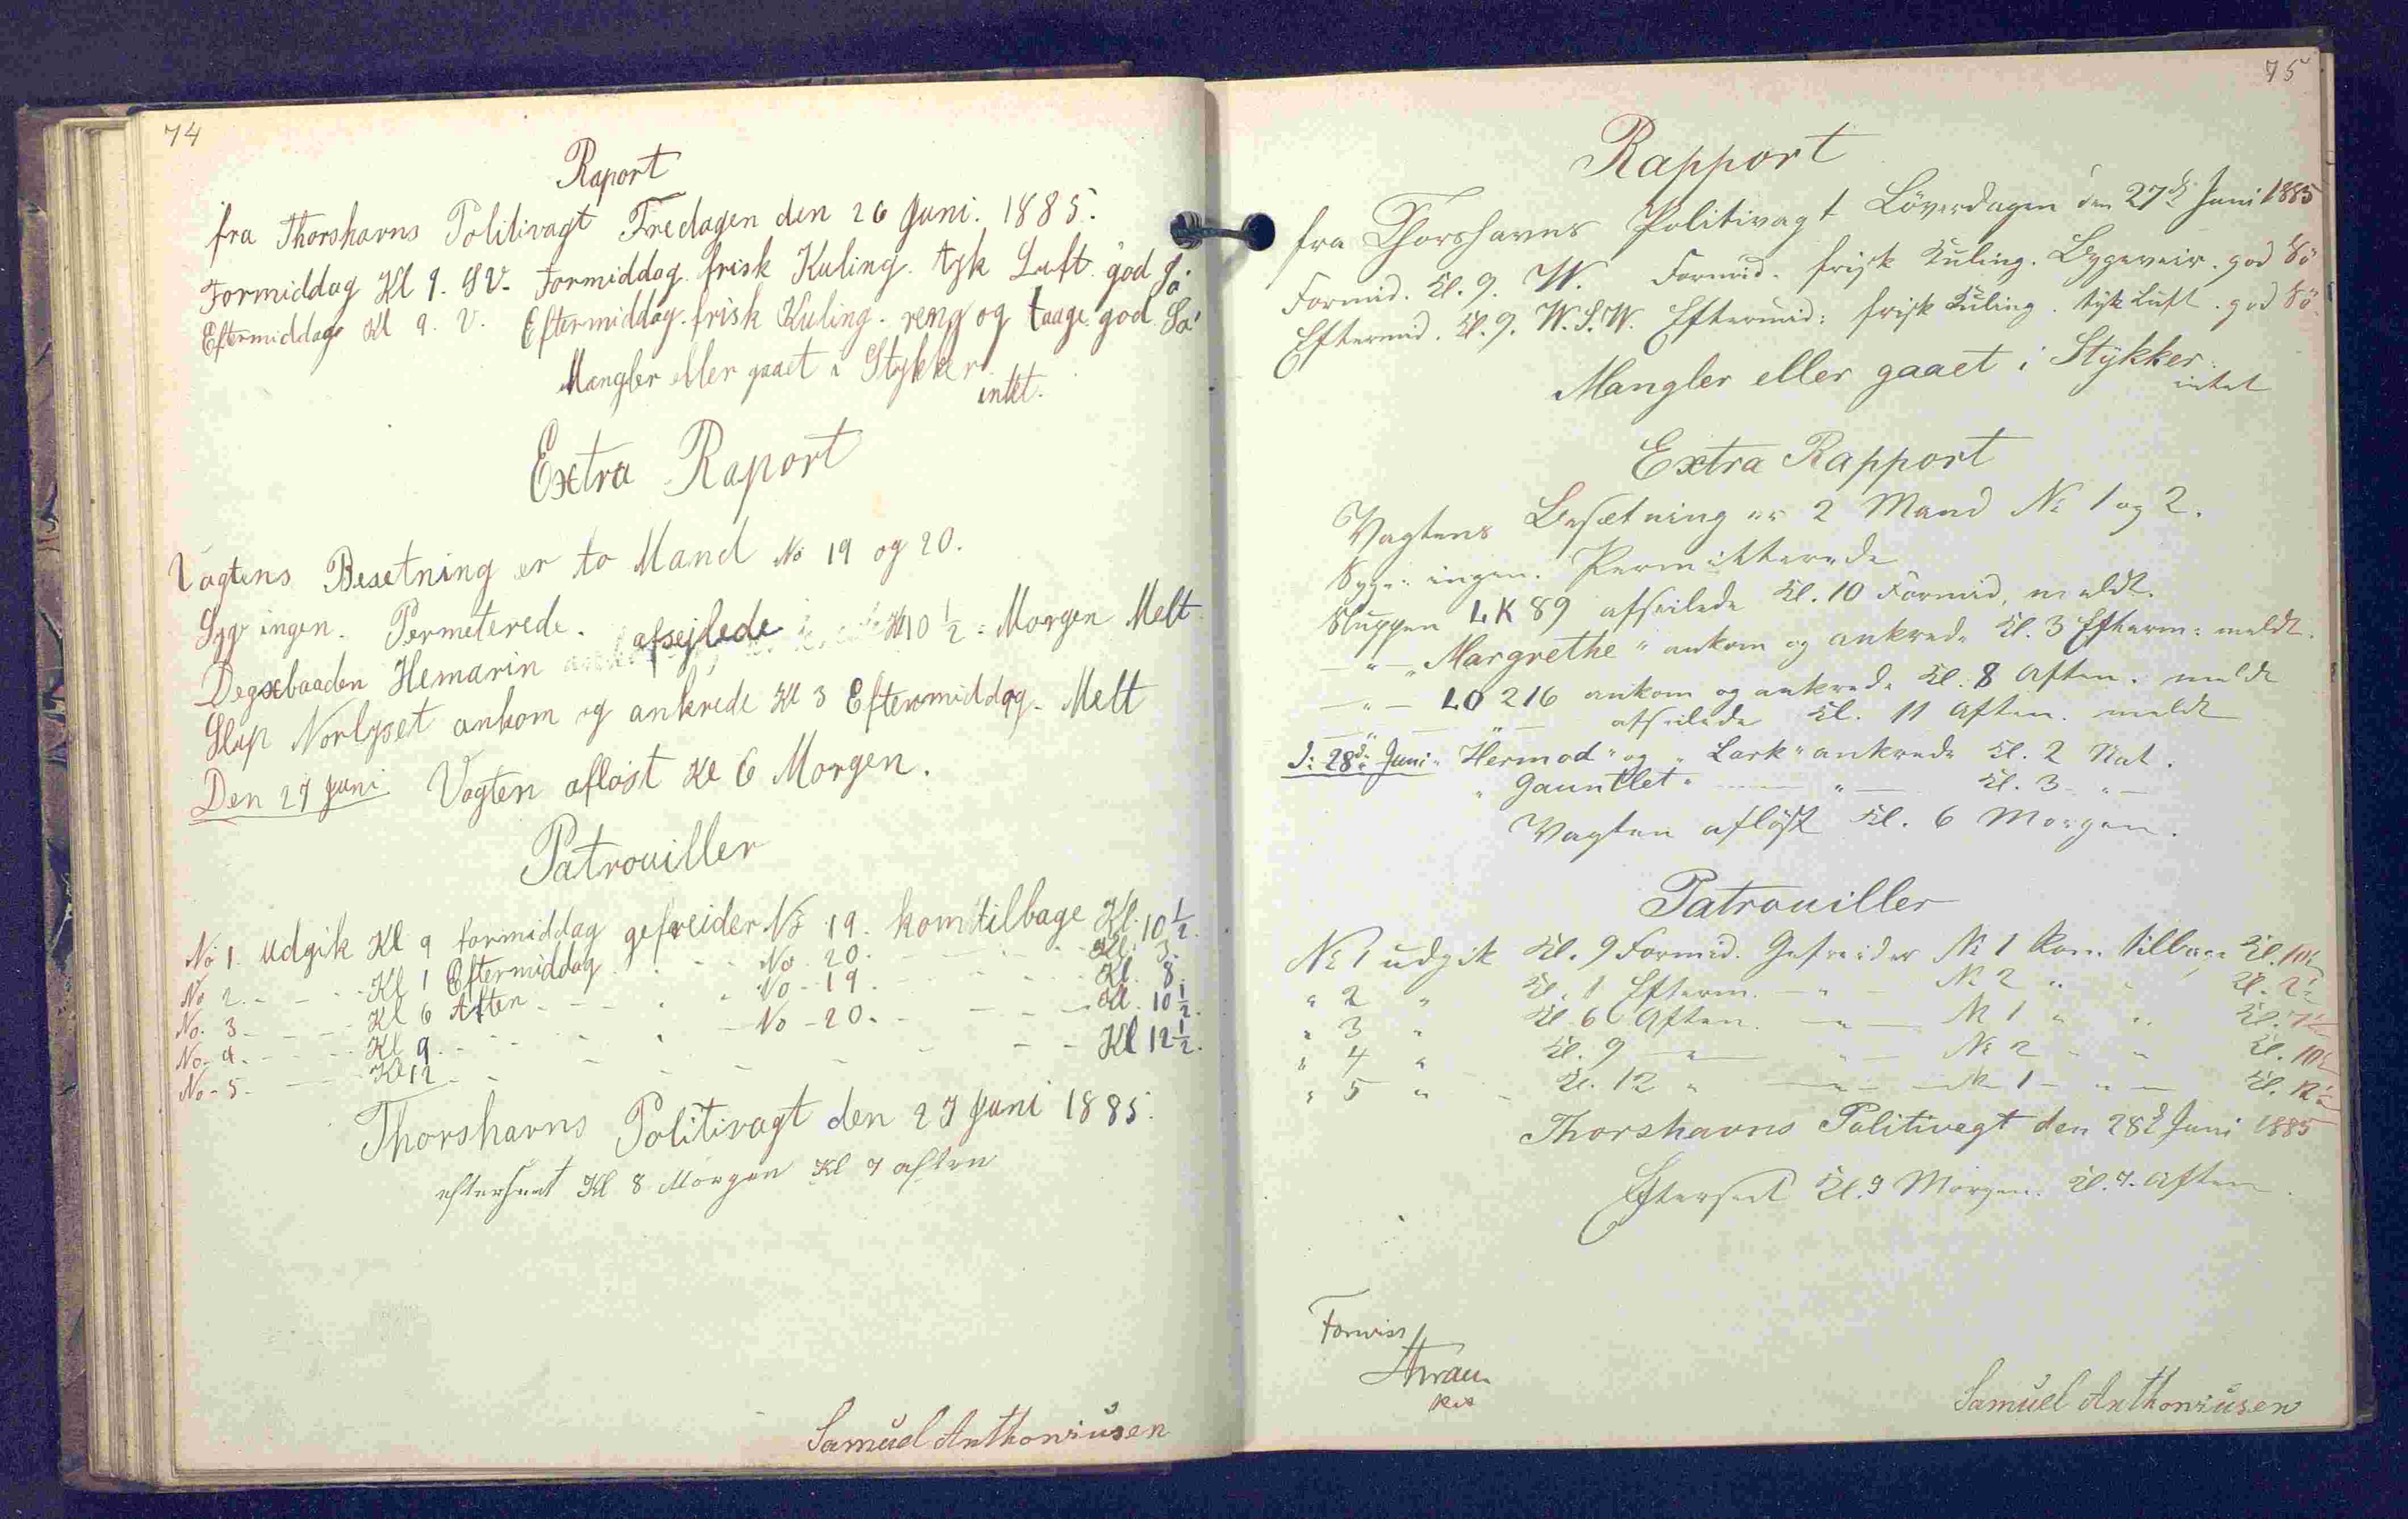 74
Raport
fra Thorshavns Politivagt Fredagen den 26 Juni. 1885.
Formiddag Kl 9. SV. Formiddag frisk Kuling. tyk Luft. god Sö.
Eftermiddag Kl 9. V. Eftermiddag. frisk Kuling. reng og taage god Sö
Mangler eller gaaet i Stykker
intet.
Extra Raport
Vagtens Besetning er to Mand No 19 og 20.
Syge ingen. Permeterede.
Degsebaaden Hemarin afsejlede Kl 10 1/2 Morgen Melt
Slup Norlyset ankom og ankrede Kl 3 Eftermiddag. Melt
Den 27 Juni. Vagten afløst Kl 6 Morgen.
Patrouiller
No 1. udgik Kl 9 formiddag gefreider No 19. kom tilbage Kl. 10 1/2.
No 2. - - - Kl 1 Eftermiddag - - No 20. - - - Kl. 3.
No. 3 - - - Kl 6 Aften - - - No - 19. - - - Kl. 8.
No. 4. - - - Kl 9. - - - No - 20. - - - Kl. 10 1/2.
No - 5 - - - Kl 12 - - - - - - Kl 12 1/2.
Thorshavns Politivagt den 27 Juni 1885.
efterseet Kl 8 Morgen Kl 7 aften
Samuel Anthoniusen
75
Rapport
fra Thorshavns Politivagt Löverdagen den 27d Juni 1885
Formid. Kl. 9. W. Formid. frisk Kuling. Bygeveir. god Sö
Eftermid. Kl. 9. W.S.W. Eftermid: frisk Kuling. tyk Luft. god Sö.
Mangler eller gaaet i Stykker.
intet
Extra Rapport
Vagtens Besætning er 2 Mand No 1 og 2.
Syge: ingen. Permitterede
Sluppen LK 89 afseilede Kl. 10 Formid, meldt.
— " — "Margrethe" ankom og ankrede Kl. 3 Efterm: meldt.
— " — LO 216 ankom og ankrede Kl. 8 Aften. meldt
— " — " — afseilede Kl. 11 Aften. meldt
d: 28d Juni "Hermod" og "Lark" ankrede Kl. 2 Nat.
"Gauntlet" — " — Kl. 3 - " —
Vagten afløst Kl. 6 Morgen.
Patrouiller
No 1 udgik Kl. 9 Formid. Gefreider No 1 kom tilbage Kl. 10 1/2
" 2 " Kl. 1 Efterm. — " — No 2 " " Kl. 2 1/2
" 3 " Kl. 6 Aften. — " — No 1 " " Kl. 7 1/2
" 4 " Kl. 9 — " — " — No 2 " " Kl. 10 1/2
" 5 " Kl. 12 " — " — No 1 — " — Kl. 12 1/2
Thorshavns Politivagt den 28d Juni 1885
Efterseet Kl. 9 Morgen. Kl. 7. Aften.
Forvist
Samuel Anthoniusen